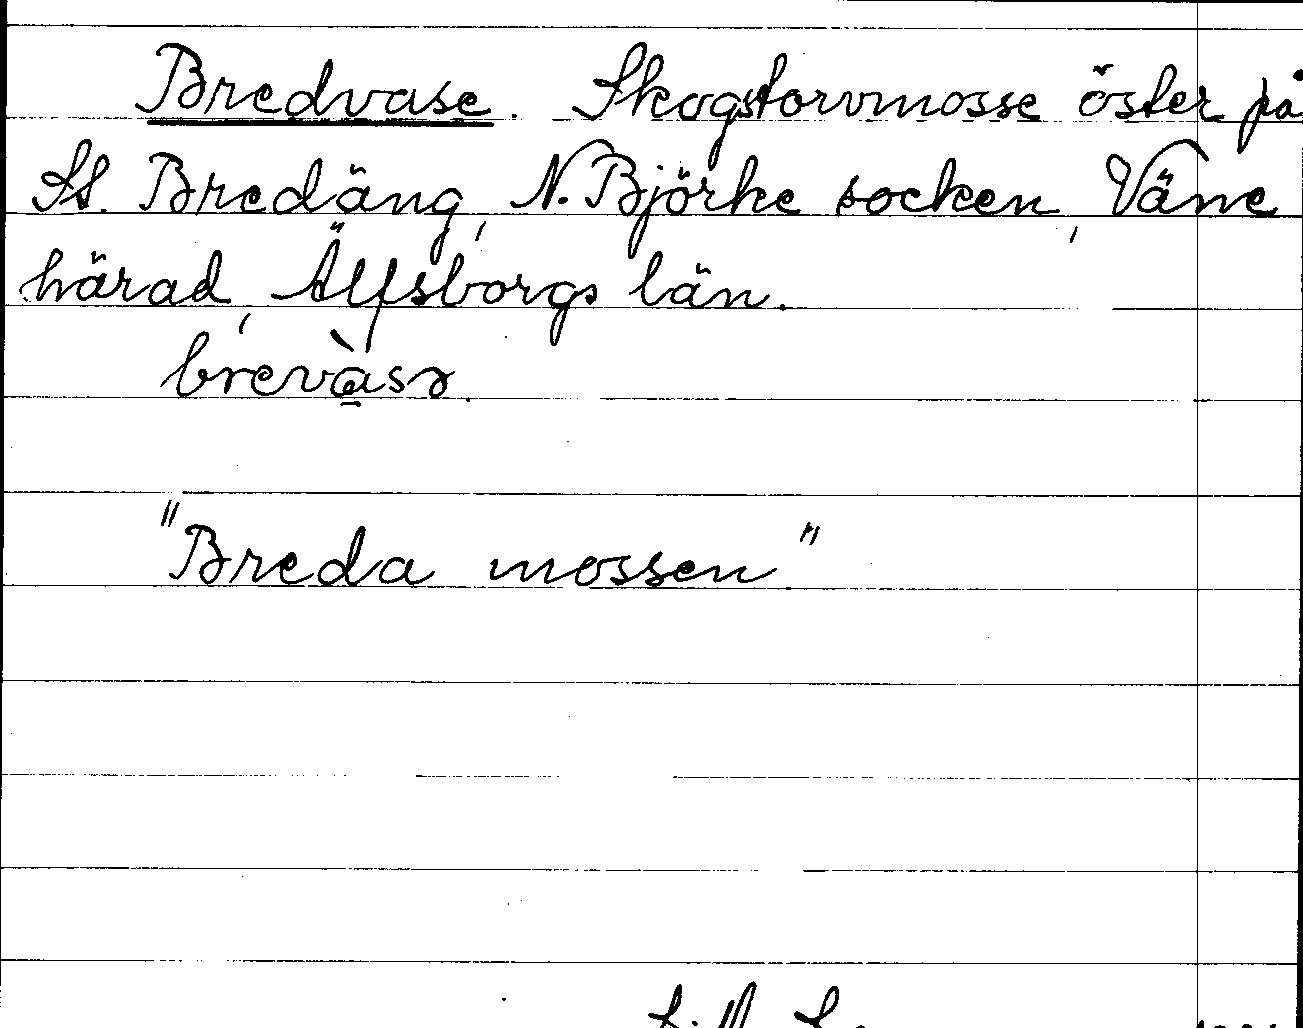 Bredvase. Skogstorvmosse öster på
St. Bredäng, N. Björke socken, Väne
härad, Älfsborgs län.
brevàsɂ.
"Breda mossen"